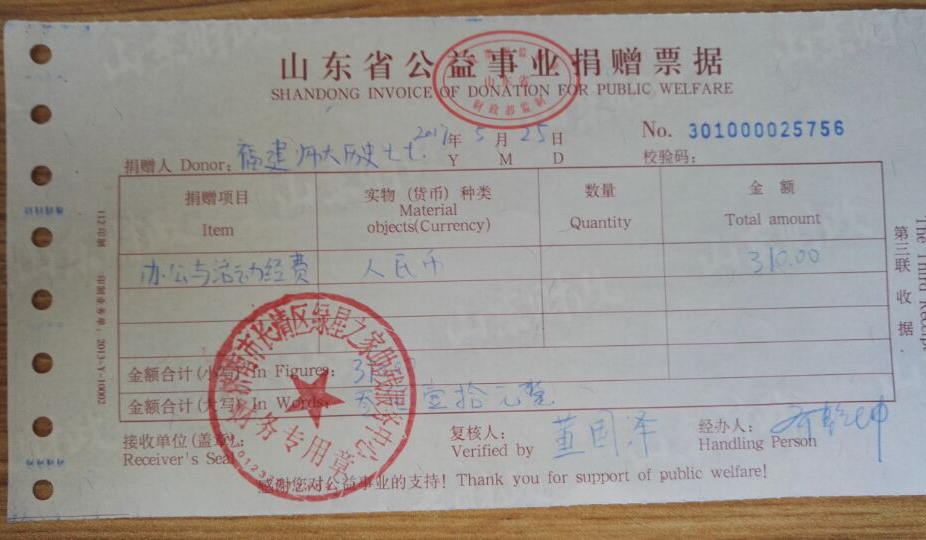 山东省公益事业捐赠票据
SHANDONG INVOICE OF DONATION FOR PUBLIC WELFARE
山东省
财政部监制
No. 301000025756
2017年 5月 25日
捐赠人 Donor: 福建师大历史七七. Y M D 校验码:
捐赠项目 实物 (货币) 种类 数量 金 额
Item Material objects(Currency) Quantity Total amount
办公与活动经费 人民币 310.00
金额合计(小写) In Figures: 3
金额合计(大写) In Words: 叁 壹拾元整
接收单位(盖章): 复核人: 经办人:
Receiver's Seal Verified by 董国泽 Handling Person
感谢您对公益事业的支持! Thank you for support of public welfare!
济南市长清区绿星之家助残服务中心
财务专用章
第三联 收据
The Third Receipt
112印制 印制业务单, 2013-Y-10002